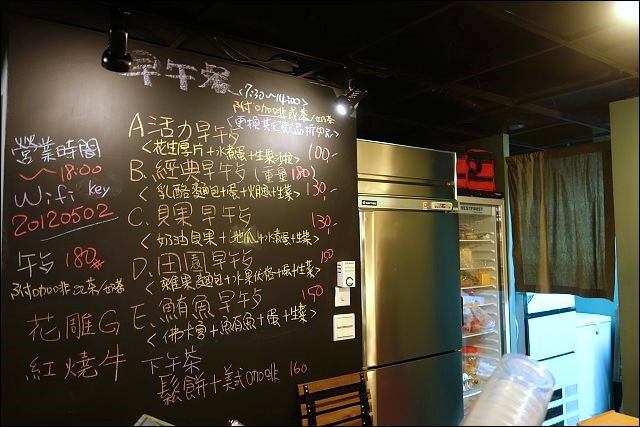 早午餐
<7:30~14:00>
附咖啡或茶/奶茶
<更換其它飲品折30元>
A 活力早午餐
<花生厚片+水煮蛋+生菜沙拉> 100,-
B. 經典早午餐 (重量180)
<乳酪麵包+蛋+火腿+生菜> 130,-
C. 貝果早午餐 130,-
<奶油貝果+地瓜+水煮蛋+生菜>
D. 田園早午餐 150
<雜果麵包+水果優格+蛋+生菜>
E. 鮪魚早午餐 150
<佛卡夏+鮪魚+蛋+生菜>
下午茶
鬆餅+美式咖啡 160
營業時間
~18:00
Wifi key
20120502
午餐 180元
附咖啡 or 茶/奶茶
花雕G
紅燒牛